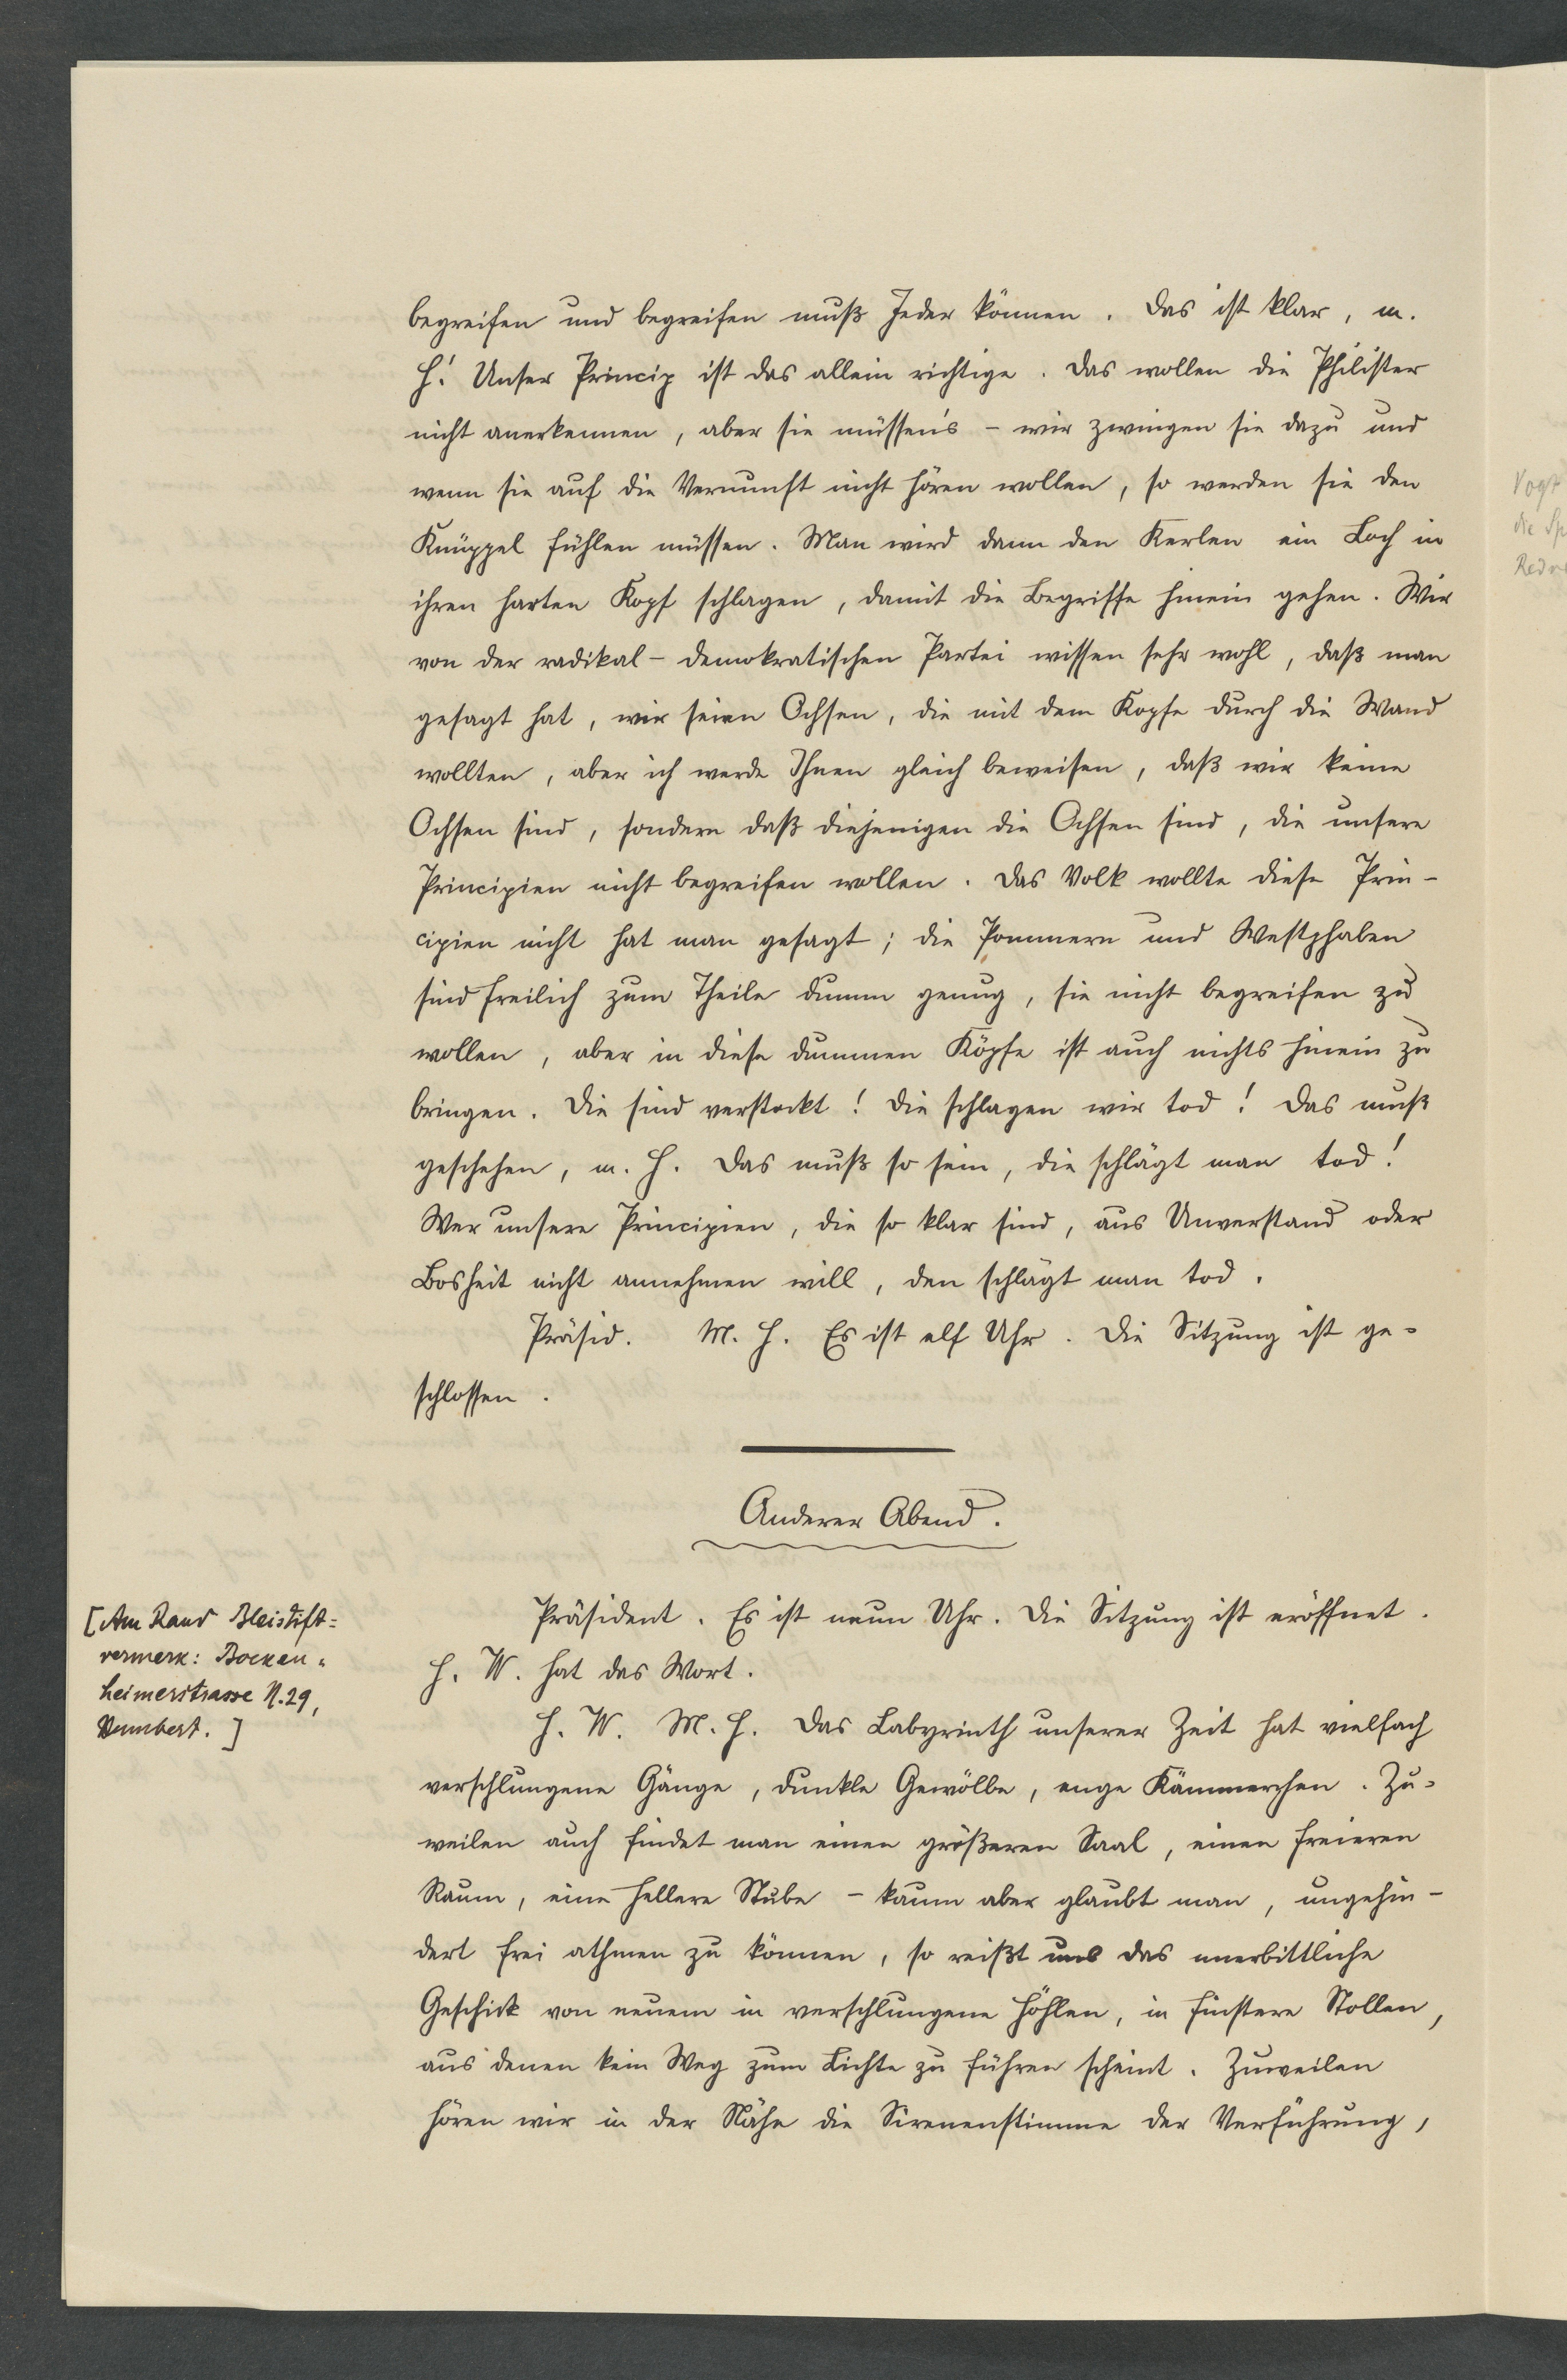 begreifen und begreifen muß Jeder können. Das ist klar, m.
H.! Unser Princip ist das allein richtige. Das wollen die Philister
nicht anerkennen, aber sie müssen's - wir zwingen sie dazu und
wenn sie auf die Vernunft nicht hören wollen, so werden sie den
Knüppel fühlen müssen. Man wird dann den Kerlen ein Loch in
ihren harten Kopf schlagen, damit die Begriffe hinein gehen. Wir
von der radikal-demokratischen Partei wissen sehr wohl, daß man
gesagt hat, wir seien Ochsen, die mit dem Kopfe durch die Wand
wollten, aber ich werde Ihnen gleich beweisen, daß wir keine
Ochsen sind, sondern daß diejenigen die Ochsen sind, die unsere
Principien nicht begreifen wollen. Das Volk wollte diese Prin-
cipien nicht hat man gesagt; die Pommern und Westphalen
sind freilich zum Theile dumm genug, sie nicht begreifen zu
wollen, aber in diese dummen Köpfe ist auch nichts hinein zu
bringen. Die sind verstockt! Die schlagen wir tod! Das muß
geschehen, m. H. Das muß so sein, die schlägt man tod!
Wer unsere Principien, die so klar sind, aus Unverstand oder
Bosheit nicht annehmen will, den schlägt man tod.
Präsid. M. H. Es ist elf Uhr. Die Sitzung ist ge-
schlossen.
Anderer Abend.
[Am Rand Bleistift-
vermerk: Bocken-
heimerstrasse N. 29,
Präsident. Es ist neun Uhr. Die Sitzung ist eröffnet.
H. W. hat das Wort.
H. W. M. H. Das Labyrinth unserer Zeit hat vielfach
verschlungene Gänge, dunkle Gewölbe, enge Kämmerchen. Zu-
weilen auch findet man einen größeren Saal, einen freieren
Raum, eine hellere Stube - kaum aber glaubt man, ungehin-
dert frei athmen zu können, so reißt uns das unerbittliche
Geschick von neuem in verschlungene Höhlen, in finstere Stollen,
aus denen kein Weg zum Lichte zu führen scheint. Zuweilen
hören wir in der Nähe die Sirenenstimme der Verführung,
Vogt
die Sp
Redn